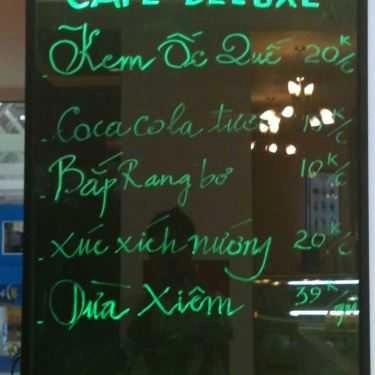 CAFE DELUXE
Kem Ốc Quế 20K/C
Coca cola tươi 15K/C
Bắp Rang bơ 10K/C
xúc xích nướng 20K/C
Dừa Xiêm 39K/quả